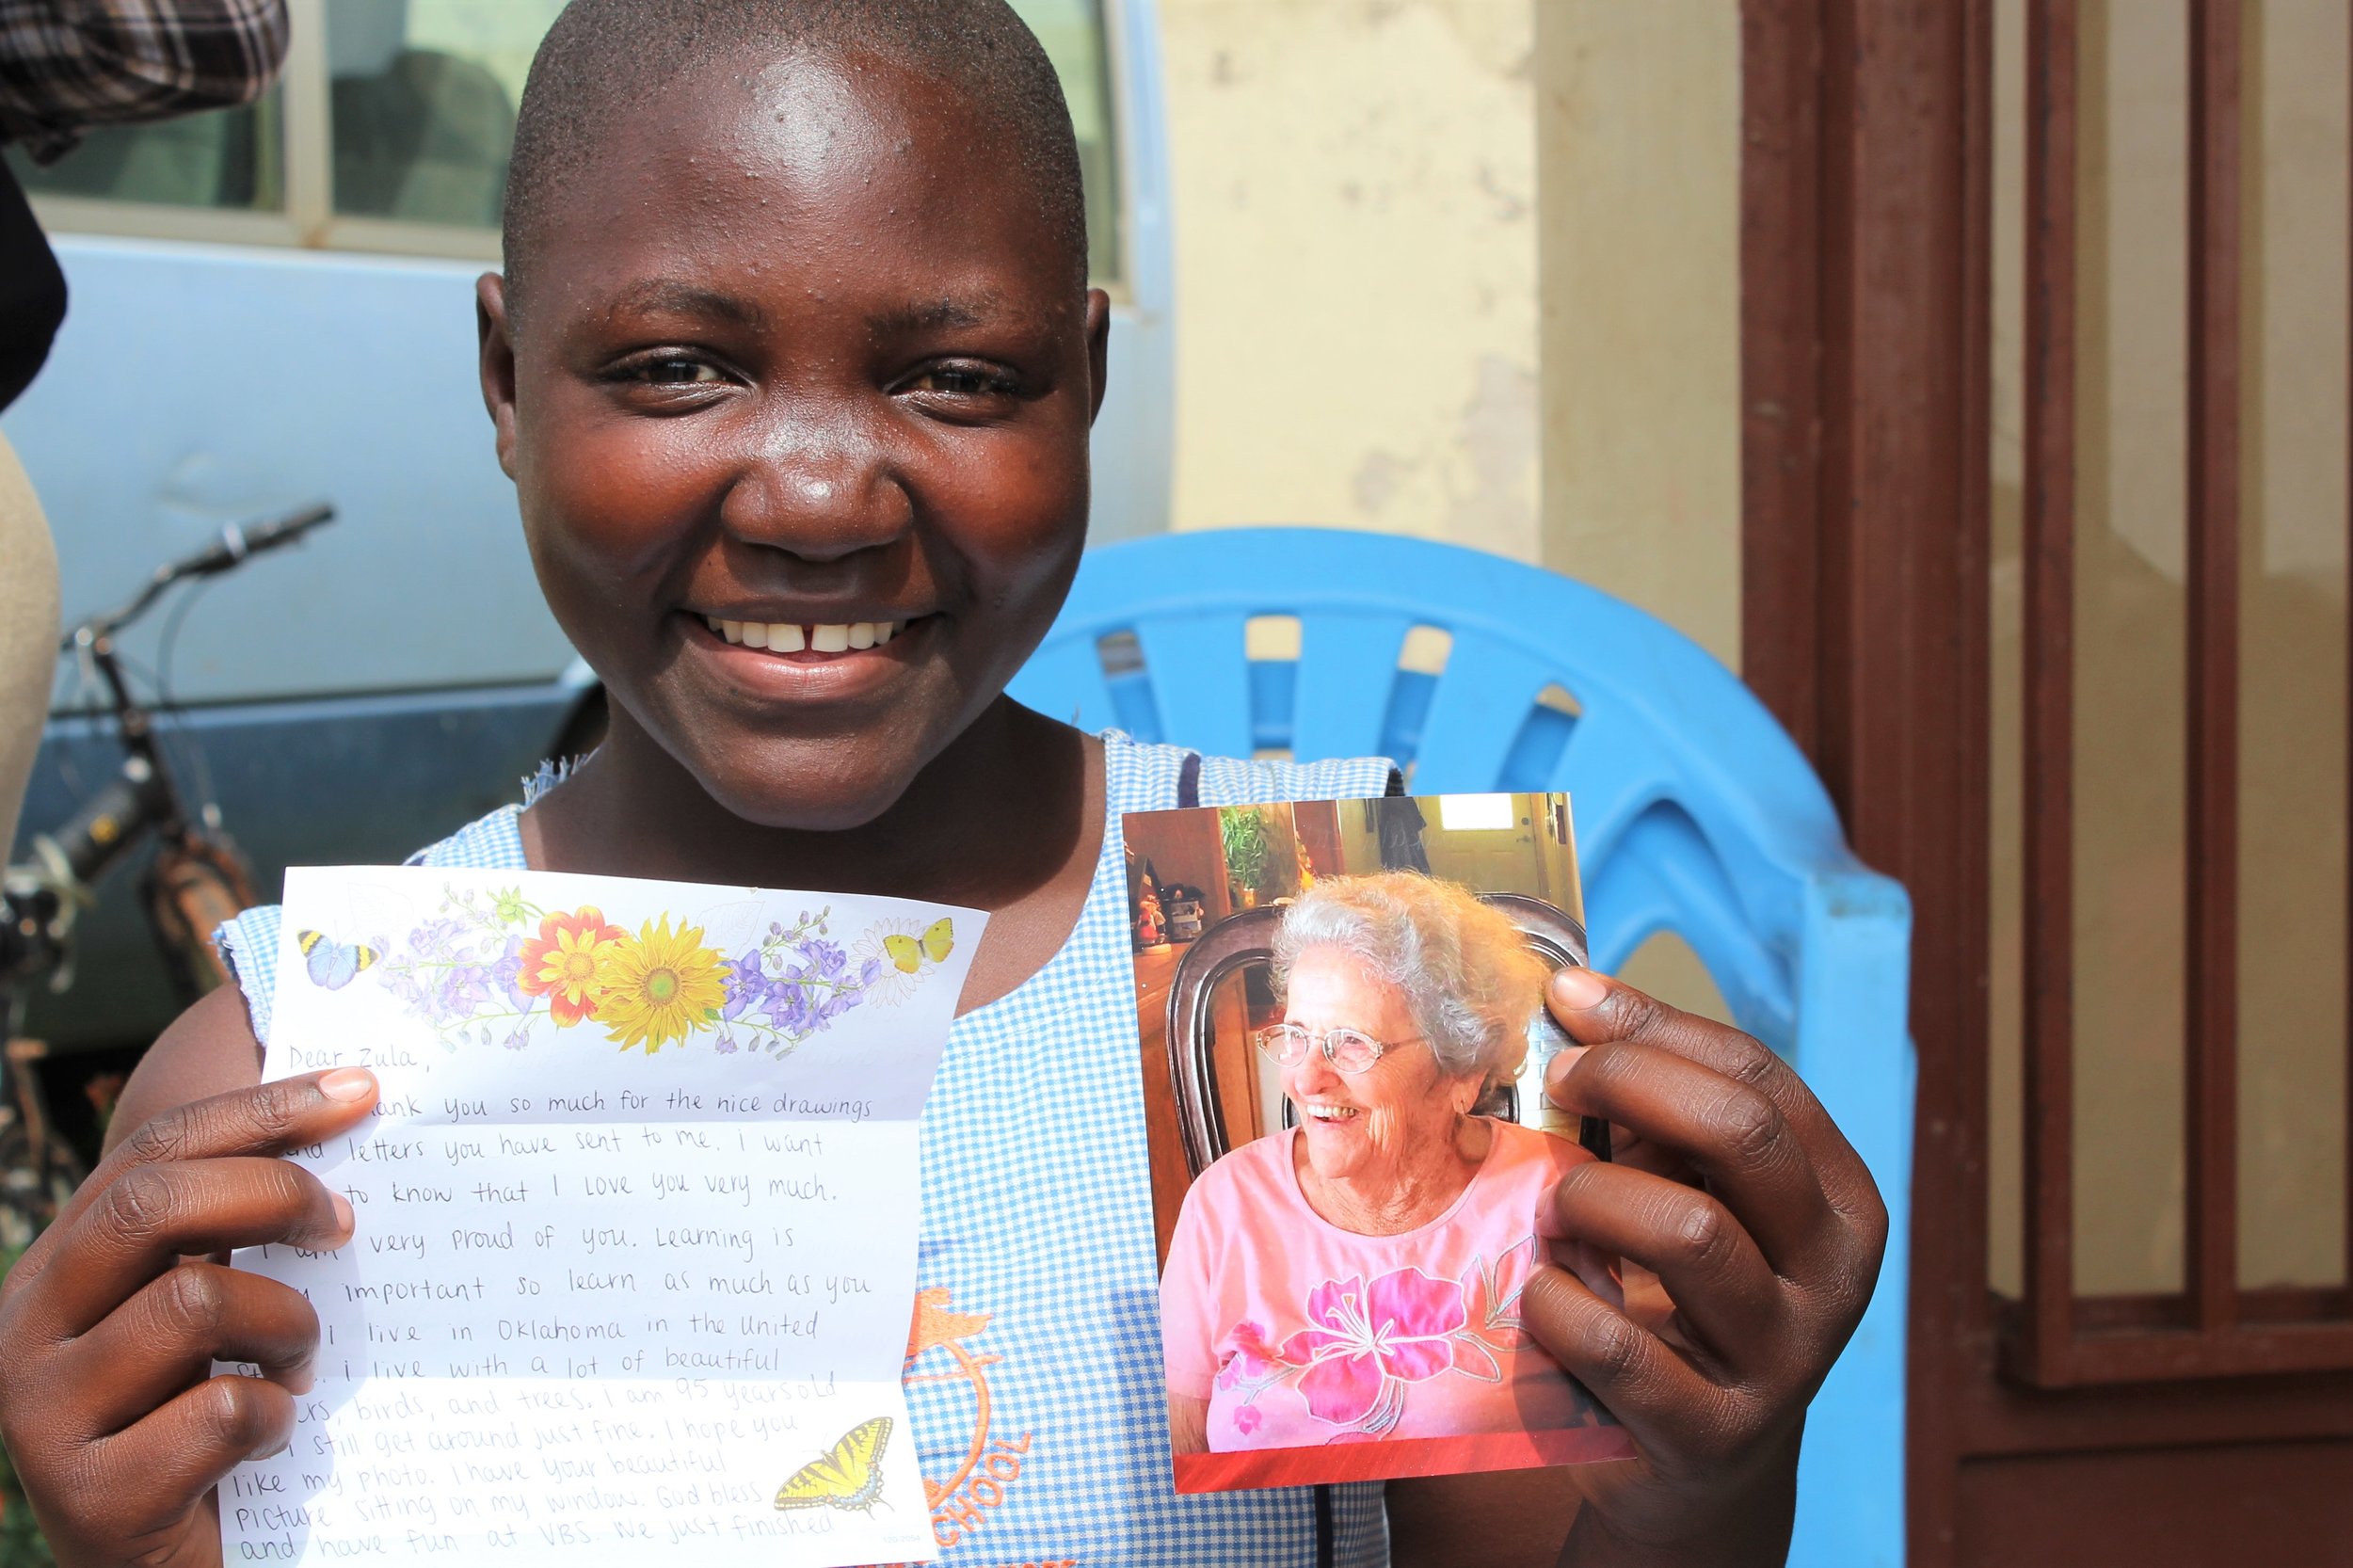 Dear Zula,
ank you so much for the nice drawings
letters you have sent to me. i want
to know that I Love you very much.
I am very proud of you. Learning is
important so learn as much as you
i live in Oklahoma in the United
i live with a lot of beautiful
rs, birds, and trees. I am 95 years old
i still get around just fine. I hope you
like my photo. I have your beautiful
picture sitting on my window. God bless
and have fun at VBS. We just finished
CHOOL